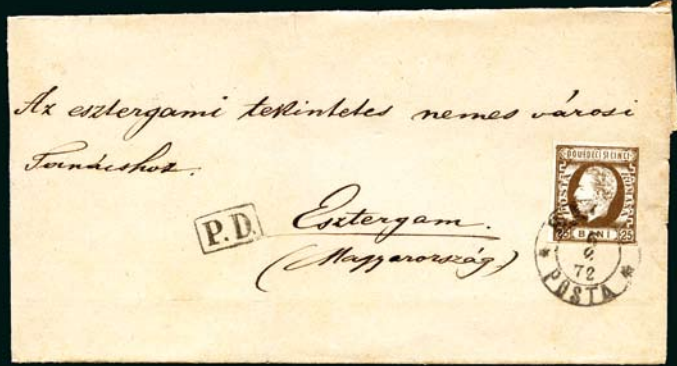 Az esztergami tekintetes nemes városi
Tanácshoz.
P.D.
Esztergam.
(Magyarország)
DOUEDECI SI CINCI
POSTA ROMANA
25 BANI 25
72
* POSTA *